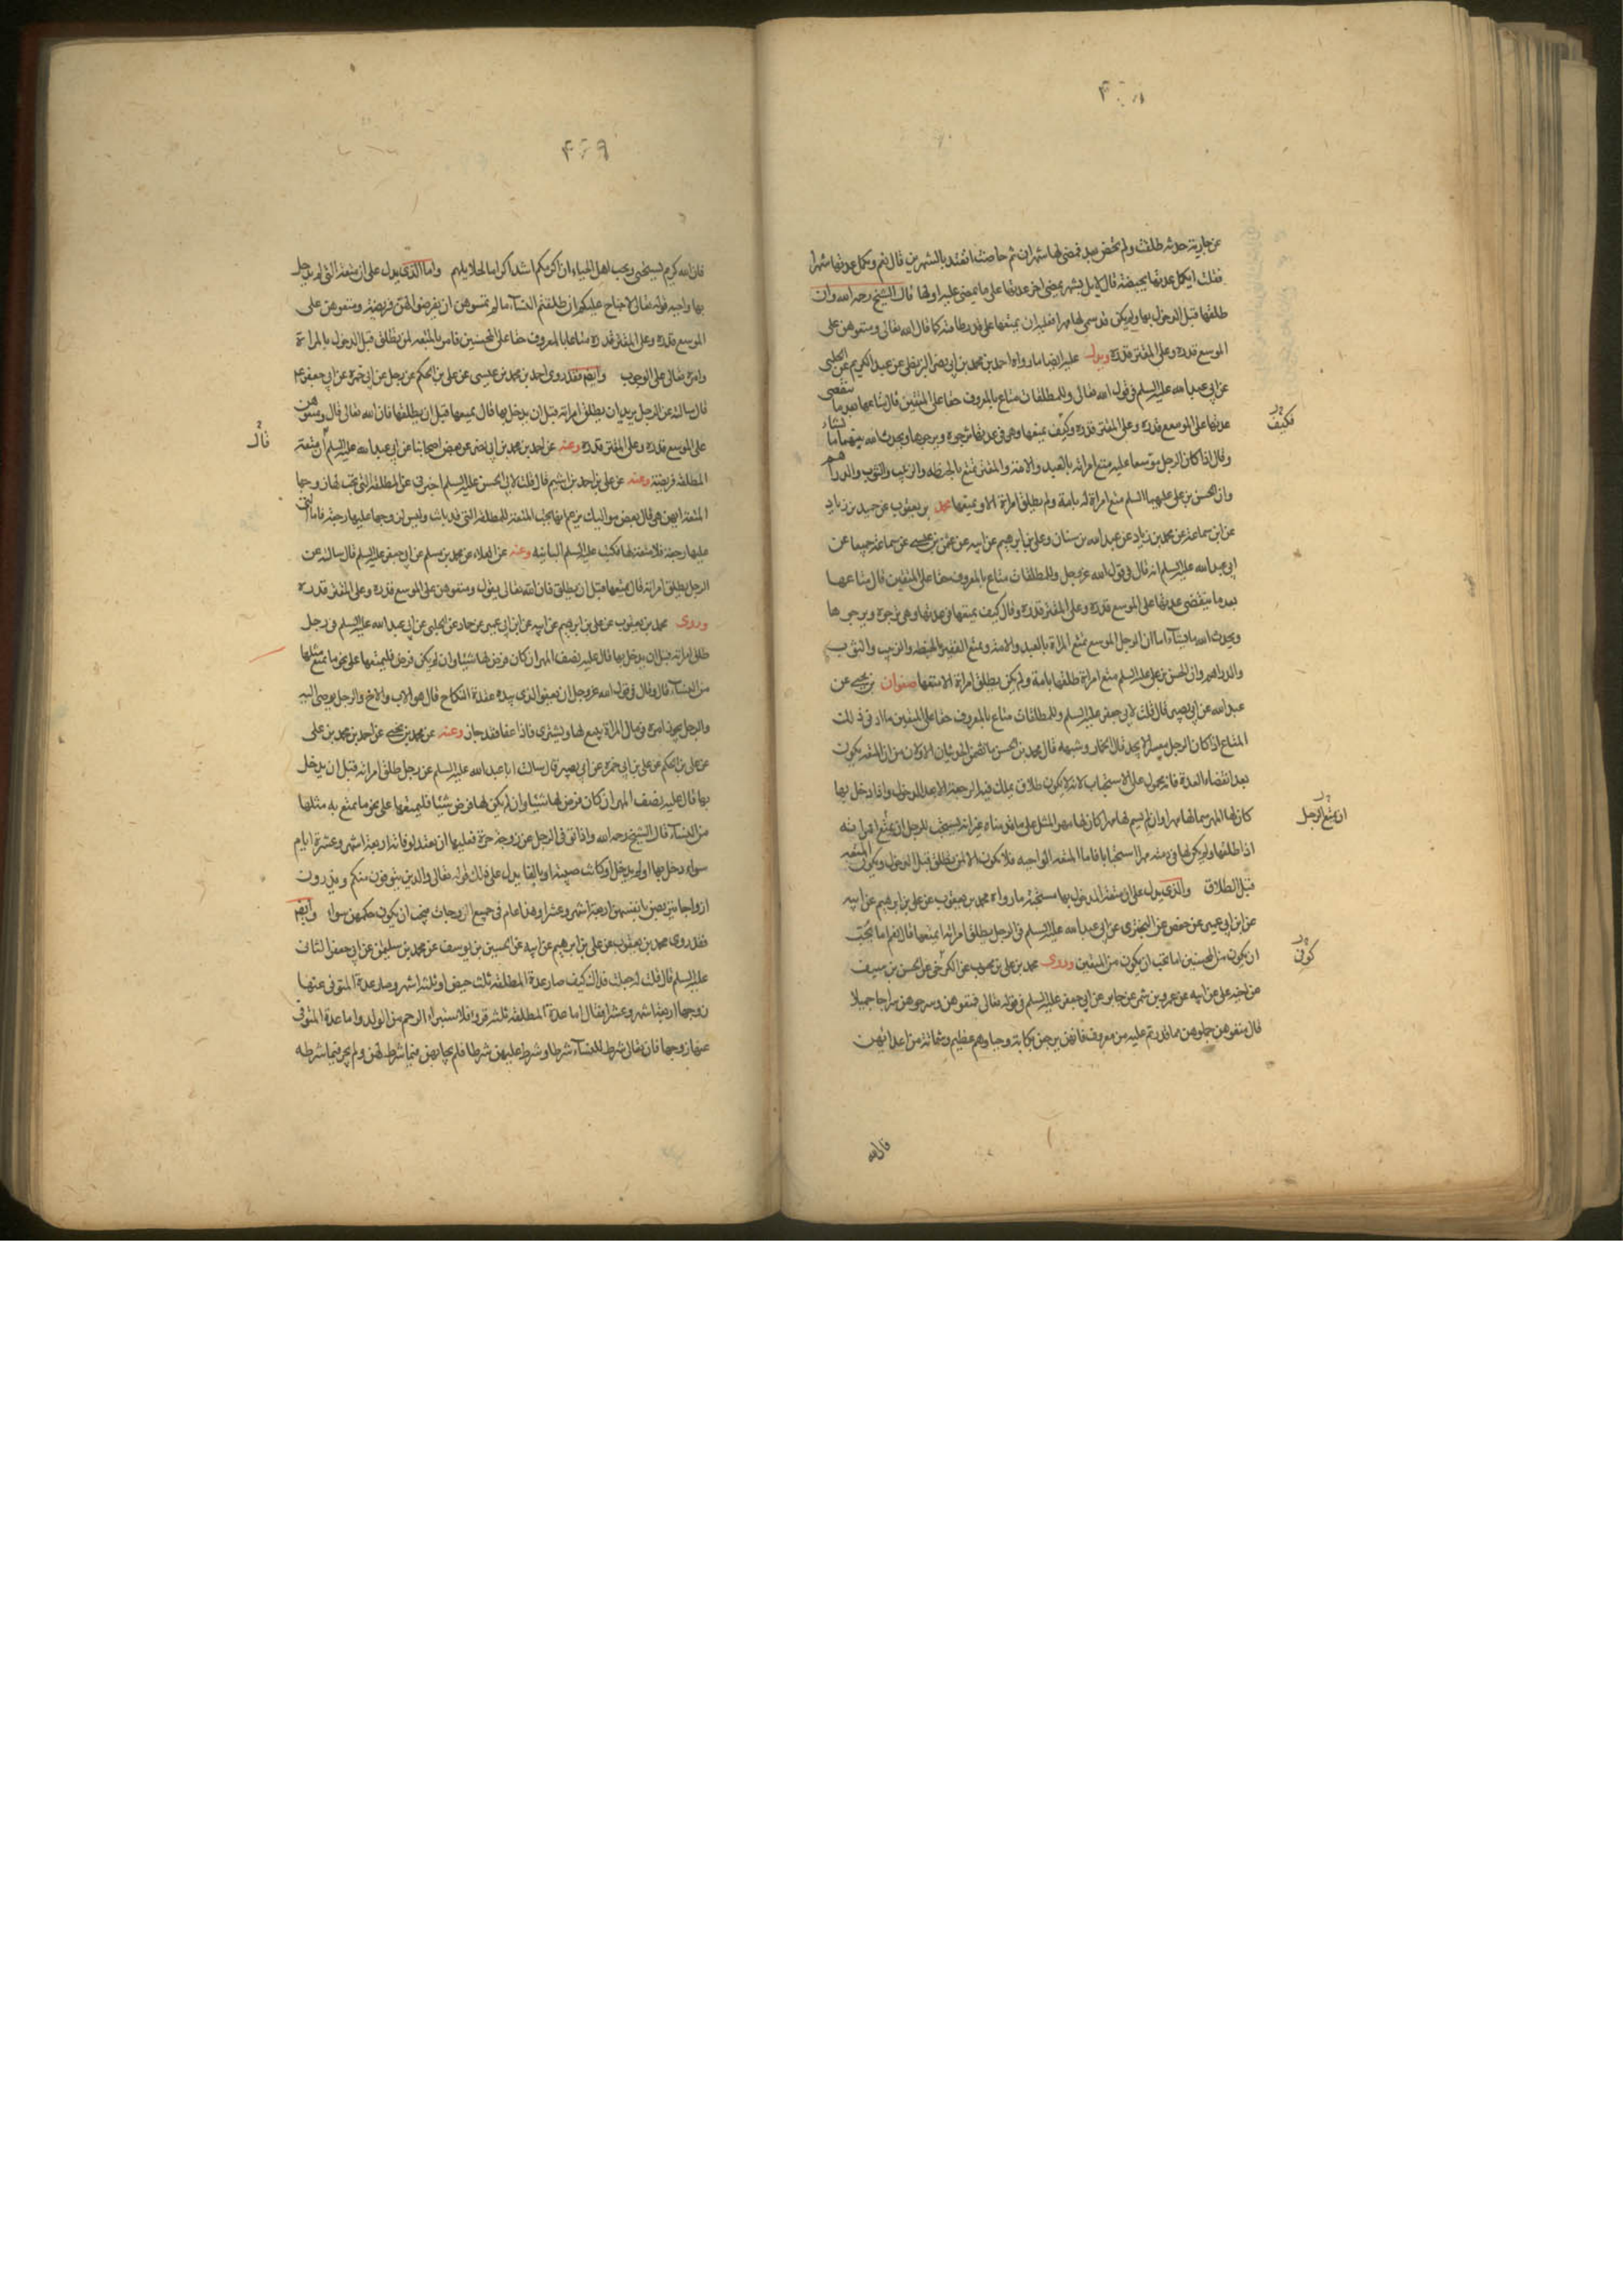 عن جارية حدثة طلقت ولم تحض بعد فمضى لها شهران ثم حاضت اتعتد بالشهرين قال نعم وتكمل عدتها شهرا
فقلت اتكمل عدتها بحيضة قال لا بل بشهر يمضي اخر عدتها على ما يمضي عليه اولها قال الشيخ رحمه الله وان
طلقها قبل الدخول بها ولم يكن قد سمى لها مهرا فعليه ان يمتعها على قدر طاقته كما قال الله تعالى ومتعوهن على
الموسع قدره وعلى المقتر قدره ويدل عليه ايضا ما رواه احمد بن محمد بن ابي نصر البزنطي عن عبد الكريم عن الحلبي
عن ابي عبد الله عليه السلم في قول الله تعالى وللمطلقات متاع بالمعروف حقا على المتقين قال متاعها بعد ما تنقضي
عدتها على الموسع قدره وعلى المقتر قدره وكيف يمتعها وهي في عدتها ترجوه ويرجوها ويحدث الله بينهما ما يشاء
وقال اذا كان الرجل موسعا عليه متع امراته بالعبد والامة والمقتر يمتع بالحنطة والزبيب والثوب والدراهم
وان الحسن بن علي عليهما السلم متع امراة له بامة ولم يطلق امراة الا ويمتعها محمد بن يعقوب عن حميد بن زياد
عن ابن سماعة عن محمد بن زياد عن عبد الله بن سنان وعلي بن ابرهيم عن ابيه عن عثمن بن عيسى عن سماعة جميعا عن
ابي عبد الله عليه السلم انه قال في قول الله عز وجل وللمطلقات متاع بالمعروف حقا على المتقين قال متاعها
بعد ما تنقضي عدتها على الموسع قدره وعلى المقتر قدره وقال كيف يمتعها في عدتها وهي ترجوه ويرجوها
ويحدث الله ما يشاء اما ان الرجل الموسع يمتع المراة بالعبد والامة ويمتع الفقير بالحنطة والزبيب والثوب
والدراهم وان الحسن بن علي عليه السلم متع امراة طلقها بامة ولم يكن يطلق امراة الا متعها صفوان بن يحيى عن
عبد الله عن ابي بصير قال قلت لابي جعفر عليه السلم وللمطلقات متاع بالمعروف حقا على المتقين ما ادنى ذلك
المتاع اذا كان الرجل معسرا لا يجد قال الخمار وشبهه قال محمد بن الحسن ما تضمن الخبران الاولان من ان المتعة يكون
بعد انقضاء العدة فانه محمول على الاستحباب لانه لا يكون طلاق يملك فيه الرجعة الا بعد الدخول واذا دخل بها
كان لها المهر سما لها مهرا وان لم يسم لها مهرا كان لها مهر المثل على ما قدمناه غير انه يستحب للرجل ان يمتع امراته
اذا طلقها ولم يكن لها في ذمته مهر استحبابا فاما المتعة الواجبة فلا يكون الا لمن يطلق قبل الدخول ويكون المتعة
قبل الطلاق والذي يدل على ان متعة المدخول بها مستحبة ما رواه محمد بن يعقوب عن علي بن ابرهيم عن ابيه
عن ابن ابي عمير عن حفص عن البختري عن ابي عبد الله عليه السلم في الرجل يطلق امراته ايمتعها قال نعم اما يحب
ان يكون من المحسنين اما يحب ان يكون من المتقين وروى محمد بن علي بن محبوب عن الكرخي عن الحسن بن سيف
عن اخيه علي عن ابيه عن عمرو بن شمر عن جابر عن ابي جعفر عليه السلم في قوله تعالى فمتعوهن وسرحوهن سراحا جميلا
قال متعوهن جملوهن مما قدرتم عليه من معروف فانهن يرجعن بكابة وحياء وهم عظيم وشماتة من اعدائهن
فكيف
ان يمتع الرجل
كوفي
فان الله
فان الله كريم يستحيي ويحب اهل الحياء ان اكرمكم اشدكم اكراما لحلايلهم واما الذي يدل على ان متعة التي لم يدخل
بها واجبة قوله تعالى لا جناح عليكم ان طلقتم النساء ما لم تمسوهن او تفرضوا لهن فريضة ومتعوهن على
الموسع قدره وعلى المقتر قدره متاعا بالمعروف حقا على المحسنين فامر بالمتعة لمن يطلق قبل الدخول بالمراة
وامره تعالى على الوجوب وايضا فقد روى احمد بن محمد بن عيسى عن علي بن الحكم عن رجل عن ابي حمزة عن ابي جعفر ع
قال سالته عن الرجل يريد ان يطلق امراته قبل ان يدخل بها قال يمتعها قبل ان يطلقها فان الله تعالى قال ومتعوهن
على الموسع قدره وعلى المقتر قدره وعنه عن احمد بن محمد بن ابي نصر عن بعض اصحابنا عن ابي عبد الله عليه السلم ان متعة
المطلقة فريضة وعنه عن علي بن احمد بن اشيم قال قلت لابي الحسن عليه السلم اخبرني عن المطلقة التي تجب لها على زوجها
المتعة ايهن هي قال بعض مواليك يزعم انها تجب المتعة للمطلقة التي قد بانت وليس لزوجها عليها رجعة فاما التي
عليها رجعة فلا متعة لها فكتب عليه السلم البائنة وعنه عن العلاء عن محمد بن مسلم عن ابي جعفر عليه السلم قال سالته عن
الرجل يطلق امراته قال يمتعها قبل ان يطلق فان الله تعالى يقول ومتعوهن على الموسع قدره وعلى المقتر قدره
وروى محمد بن يعقوب عن علي بن ابرهيم عن ابيه عن ابن ابي عمير عن حماد عن الحلبي عن ابي عبد الله عليه السلم في رجل
طلق امراته قبل ان يدخل بها قال عليه نصف المهر ان كان فرض لها شيئا وان لم يكن فرض فليمتعها على نحو ما يمتع مثلها
من النساء قال وقال في قول الله عز وجل او يعفو الذي بيده عقدة النكاح قال هو الاب والاخ والرجل يوصى اليه
والرجل يجوز امره في مال المراة يبيع لها ويشتري فاذا عفا فقد جاز وعنه عن محمد بن يحيى عن احمد بن محمد بن علي
عن علي بن الحكم عن علي بن ابي حمزة عن ابي بصير قال سالت ابا عبد الله عليه السلم عن رجل طلق امراته قبل ان يدخل
بها قال عليه نصف المهر ان كان فرض لها شيئا وان لم يكن لها فرض شيئا فليمتعها على نحو ما يمتع به مثلها
من النساء قال الشيخ رحمه الله واذا توفى الرجل عن زوجة حرة فعليها ان تعتد لوفاته اربعة اشهر وعشرة ايام
سواء دخل بها او لم يدخل او كانت صبية او بالغا يدل على ذلك قوله تعالى والذين يتوفون منكم ويذرون
ازواجا يتربصن بانفسهن اربعة اشهر وعشرا وهذا عام في جميع الزوجات فيجب ان يكون حكمهن سواء وايضا
فقد روى محمد بن يعقوب عن علي بن ابرهيم عن ابيه عن الحسين بن يوسف عن محمد بن سليمن عن ابي جعفر الثاني
عليه السلم قال قلت له جعلت فداك كيف صار عدة المطلقة ثلث حيض او ثلثة اشهر وصار عدة المتوفى عنها
زوجها اربعة اشهر وعشرا فقال اما عدة المطلقة ثلثة قروء فلاستبراء الرحم من الولد واما عدة المتوفى
عنها زوجها فان الله تعالى شرط للنساء شرطا وشرط عليهن شرطا فلم يحابهن فيما شرط لهن ولم يجر فيما شرطه
قال